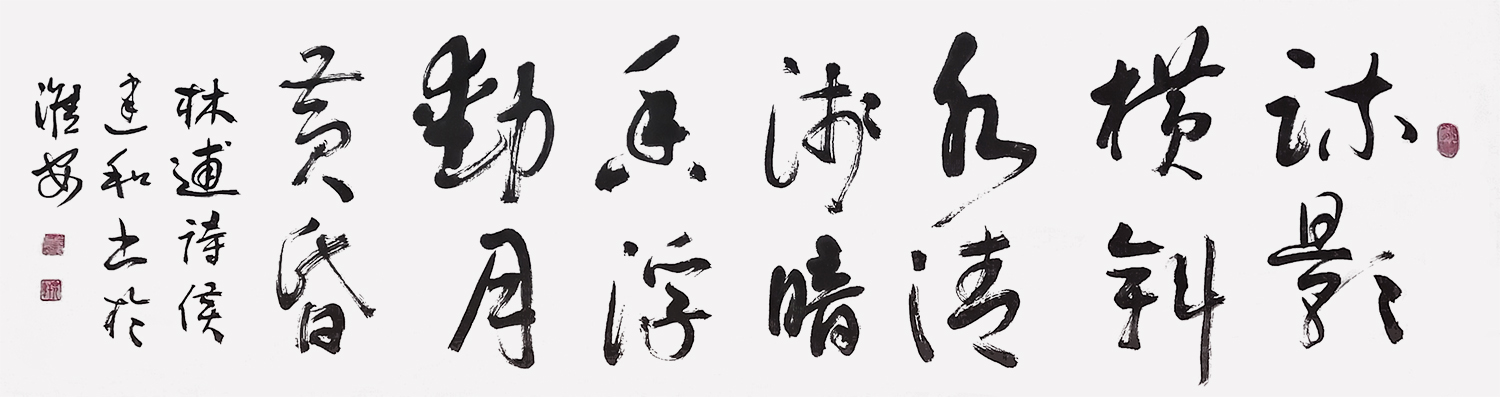 疏影
横斜
水清
浅暗
香浮
動月
黄昏
林逋詩侯
建和书於
淮安